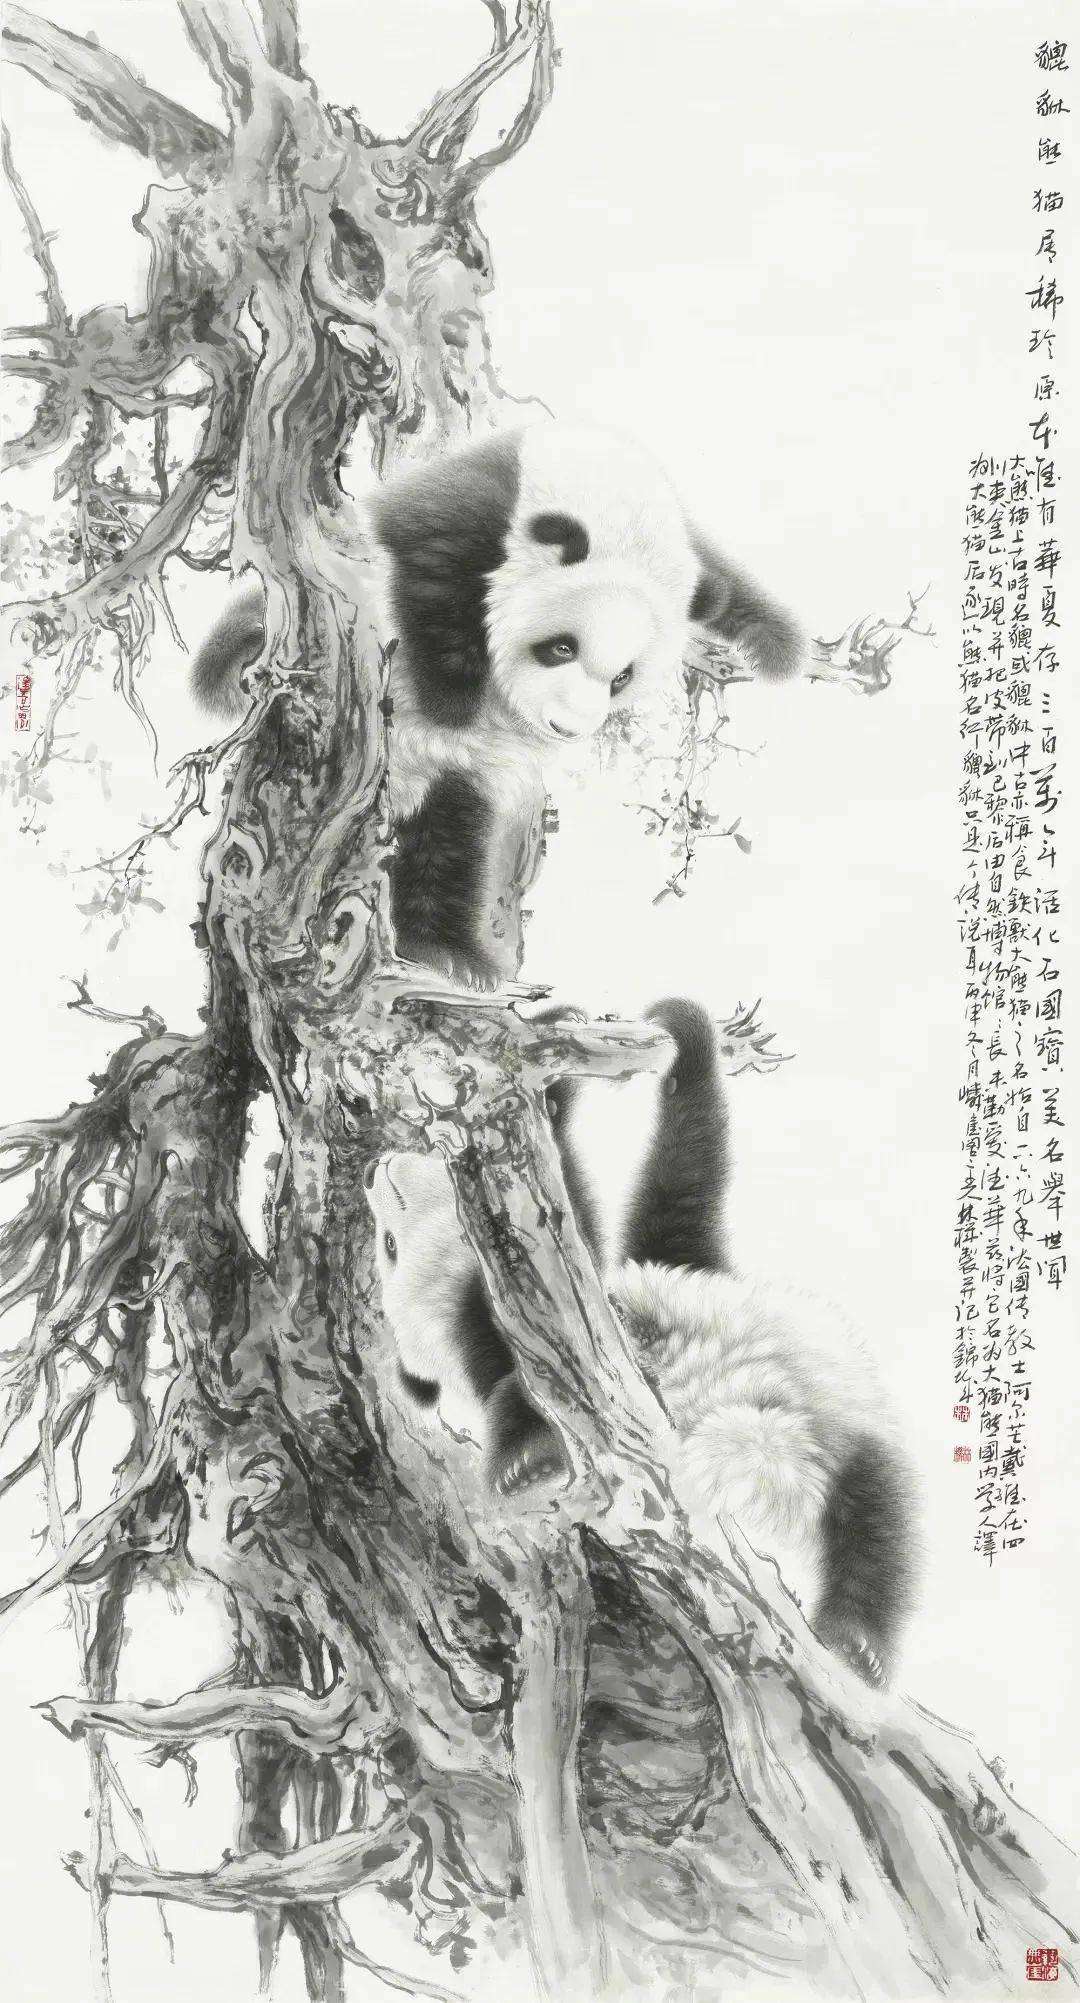 貔貅熊猫属稀珍原本唯有華夏存三百萬年活化石國寶美名舉世聞
大熊猫上古時名貔或貔貅中古亦稱食鉄獸大熊猫之名始自一八六九年法國传教士阿尔芒戴維在四
川夹金山发現并把皮带到巴黎后由自然博物馆馆長米勒爱德華兹将它名为大猫熊國内学人譯
为大熊猫后遂以熊猫名行貔貅只是个传说耳丙申冬月
林 製并记於錦城